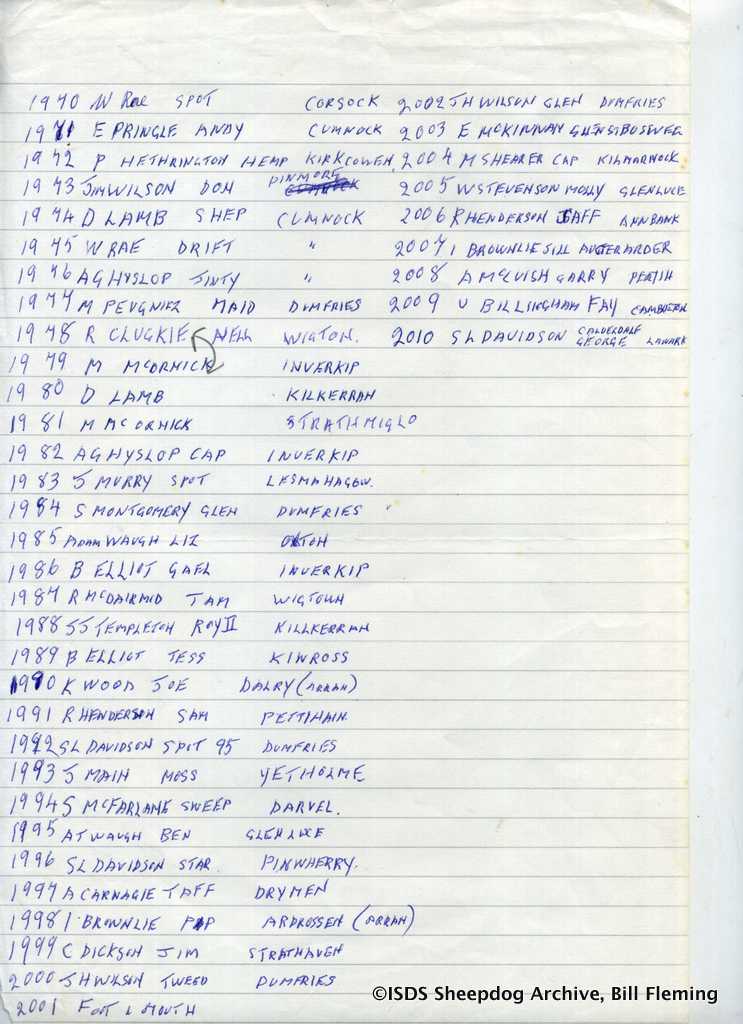 1970 W Rae SPOT CORSOCK
1971 E PRINGLE ANDY CUMNOCK
1972 P HETHRINGTON HEMP KIRKCOWEN
1973 JIM WILSON DON PINMORE
1974 D LAMB SHEP CUMNOCK
1975 W RAE DRIFT "
1976 A G HYSLOP JINTY "
1977 M PEUGNIEZ MAID DUMFRIES
1978 R CLUGKIE NELL WIGTON.
1979 M MCORMICK INVERKIP
1980 D LAMB KILKERRAN
1981 M MCORMICK STRATHMIGLO
1982 A G HYSLOP CAP INVERKIP
1983 J MURRY SPOT LESMAHAGOW.
1984 S MONTGOMERY GLEN DUMFRIES
1985 ADAM WAUGH LIZ OXTON
1986 B ELLIOT GAEL INVERKIP
1987 R MCDAIRMID TAM WIGTOWN
1988 JJ TEMPLETON ROY II KILLKERRAN
1989 B ELLIOT TESS KINROSS
1990 K WOOD JOE DALRY (ARRAN)
1991 R HENDERSON SAM PETTINAIN
1992 S L DAVIDSON SPOT 95 DUMFRIES
1993 J MAIN MOSS YETHOLME
1994 S MCFARLANE SWEEP DARVEL.
1995 A T WAUGH BEN GLENLUCE
1996 S L DAVIDSON STAR PINWHERRY.
1997 A CARNAGIE TAFF DRYMEN
1998 I BROWNLIE POP ARDROSSEN (ARRAN)
1999 C DICKSON JIM STRATHAVEN
2000 J H WILSON TWEED DUMFRIES
2001 FOOT & MOUTH
2002 J H WILSON GLEN DUMFRIES
2003 E MCKINNAN GLEN
2004 M SHEARER CAP KILMARNOCK
2005 W STEVENSON MOLLY GLENLUCE
2006 R HENDERSON JAFF ANNBANK
2007 I BROWNLIE JILL AUCTERARDER
2008 A MCUISH GARRY PERTH
2009 U BILLINGHAM FAY
2010 S L DAVIDSON CALDERDALE GEORGE LANARK
©ISDS Sheepdog Archive, Bill Fleming